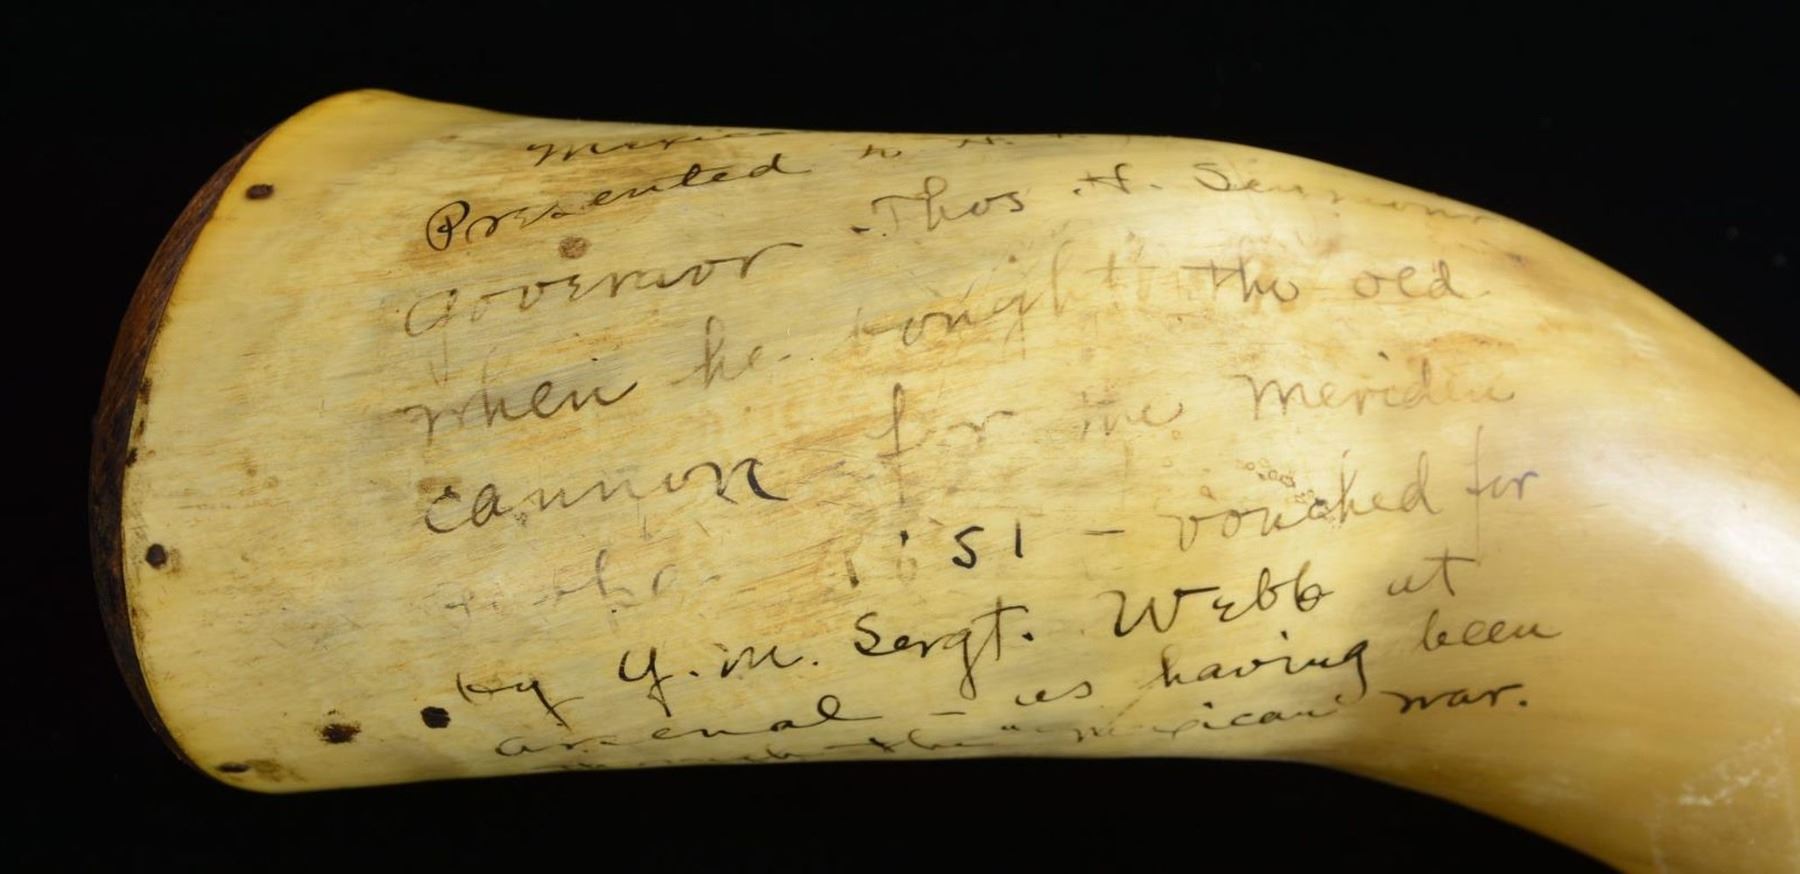 Presented to
Governor Thos H. Seymour
when he bought the old
cannon for the Meriden
1851 - vouched for
by Q. M. Sergt. Webb at
arsenal - as having been
through the "Mexican war.